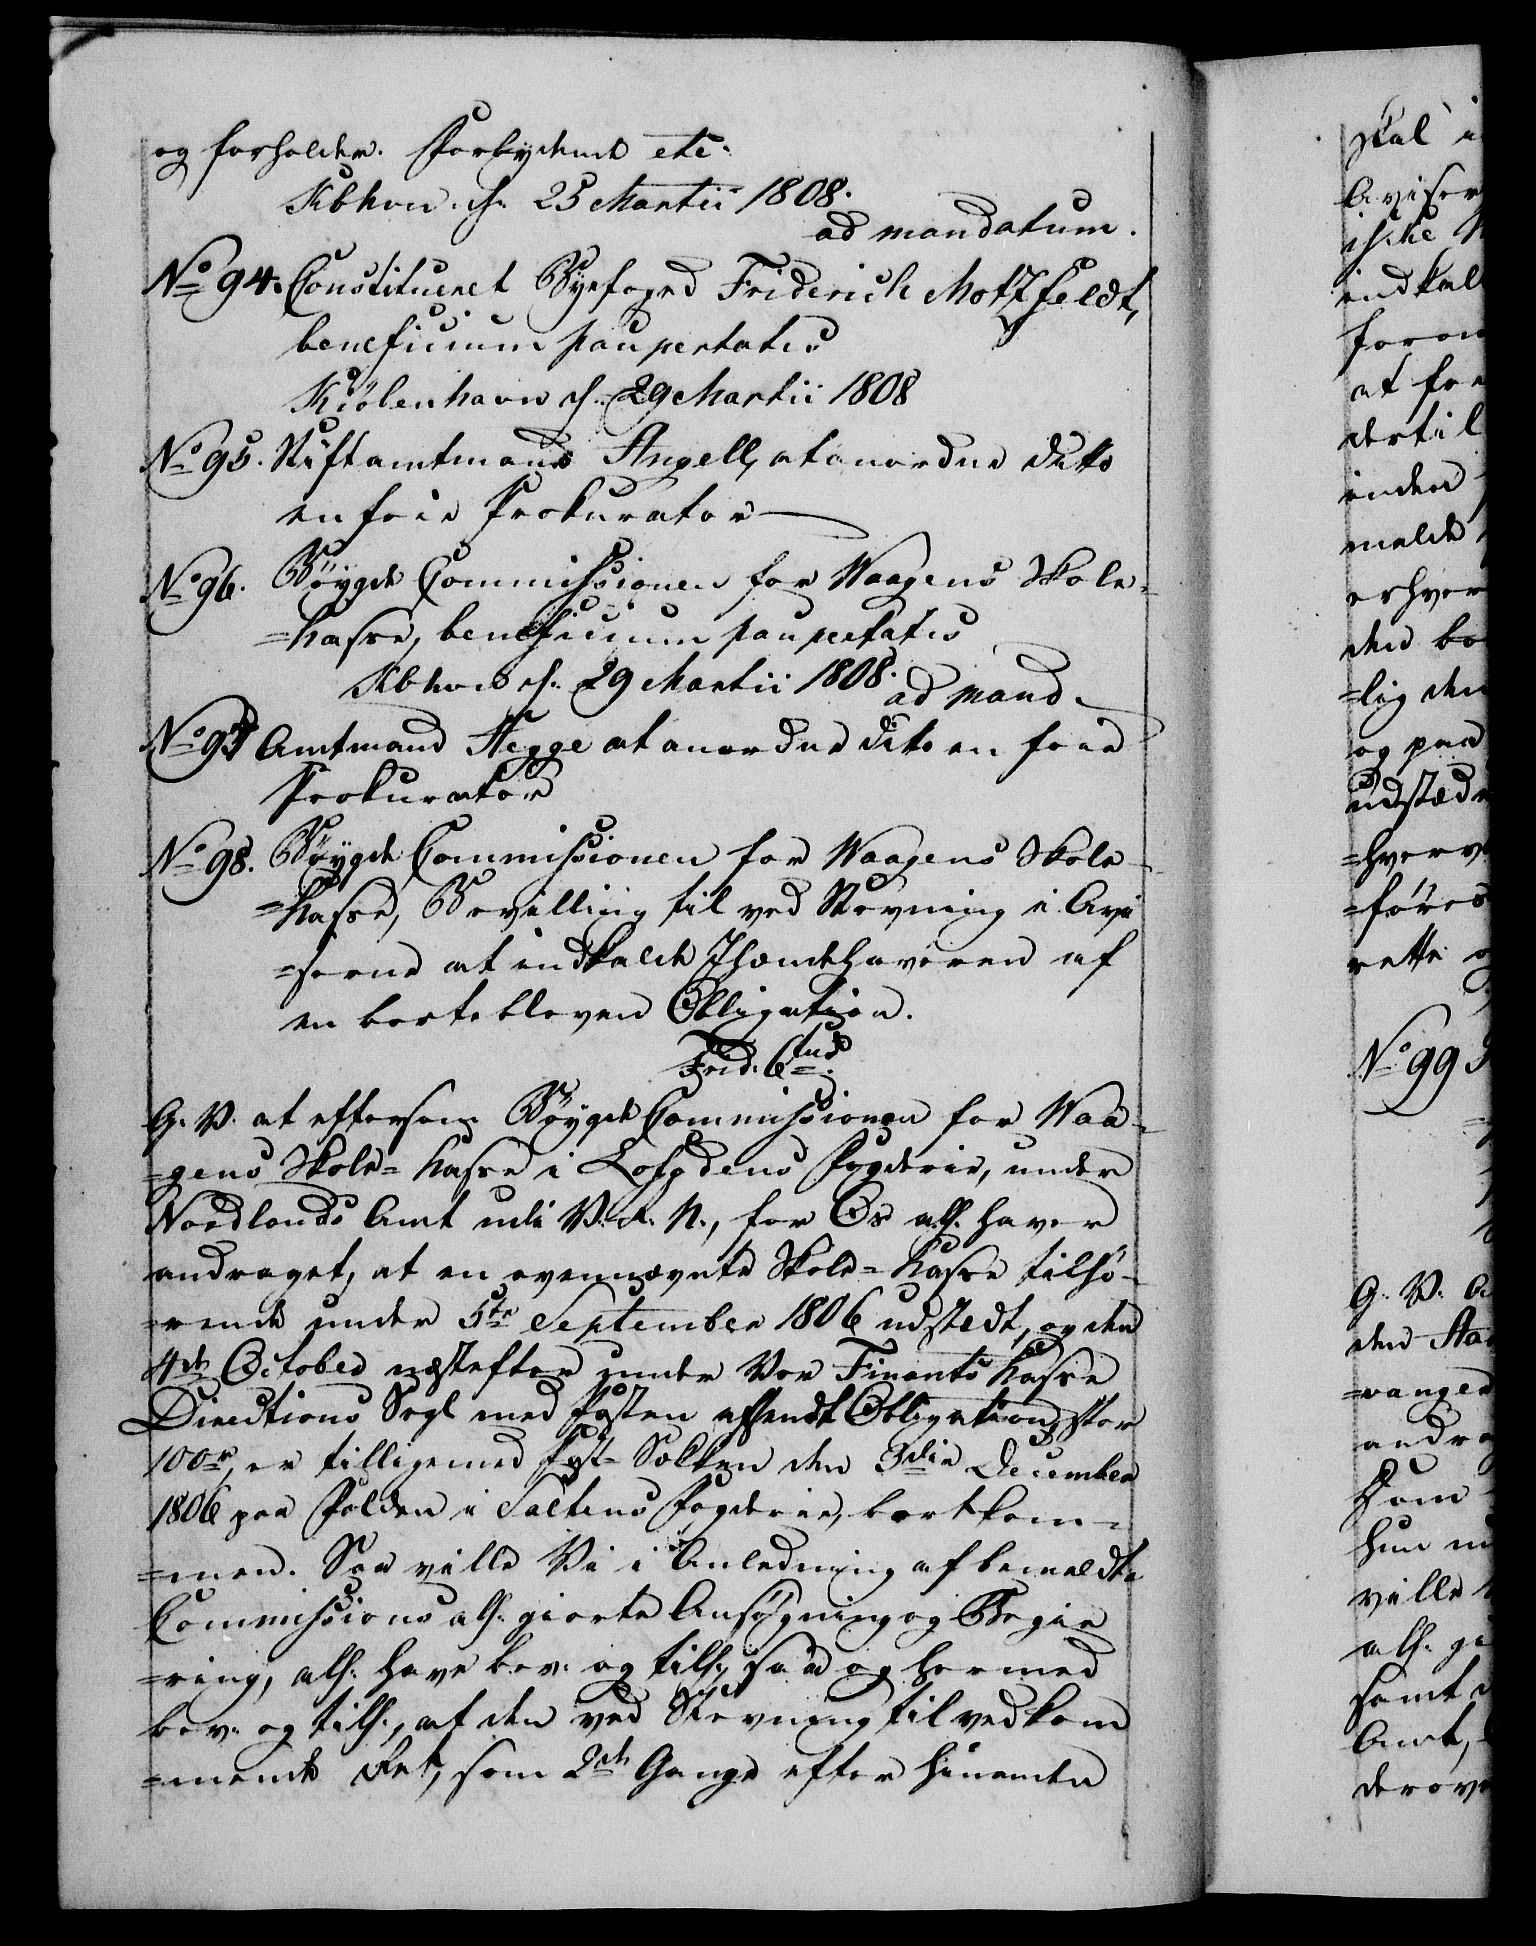 og forholder. Forbydende etc.
Kbhvn. d. 25 Martii 1808.
ad mandatum.
No 94. Constitueret Byefoged Friderich Motzfeldt,
beneficium paupertatis
Kiøbenhavn d. 29 Martii 1808
No 95. Stiftamtmand Angell, at anordne ditto
en frie Prokurator
No 96. Bøygde Commissionen for Waagens Skole-
=Kasse, beneficium paupertatis
Kbhvn d. 29 Martii 1808.
ad mand
No 97 Amtmand Hegge at anordne dito en frie
Prokurator
No 98. Bøygde Commissionen for Waagens Skole
=Kasse, Bevilling til ved Stevning i Avi
=serne at indkalde Ihændehaveren af
en bortebleven Obligation.
Frid: 6tus.
G. V. at eftersom Bøygde Commissionen for Waa-
=gens Skole=Kasse i Lofodens Fogderie, under
Nordlands Amt udi V. R. N., for Os all. haver
andraget, at en ovennævnte Skole=Kasse tilhø-
=rende under 5te September 1806 udstedt, og den
4de October næstefter under Vor Finants Kasse
Directions Segl med Posten afsendt Obligation, stor
100 r, er tilligemed Post-Sækken den 3die December
1806 paa Folden i Saltens Fogderie, bortkom-
=men. Saa ville Vi i Anledning af bemeldte
Commissions all. giorte Ansøgning og Begie
=ring, all. have bev: og till:, saa og hermed
bev: og till:, at den ved Stevning til vedkom
=mende Ret, som 2de Gange efter hinanden
skal i
Aviser
indkal
foron
at fre
dertil
inden
melde
erhver
den bo
=lig den
og paa
udstæde
=hverv
=føres
rette o
No 99
G. V. A
den Sta
=vanger
andra
Som
hun
ville
all. gi
samt
Amt,
derove